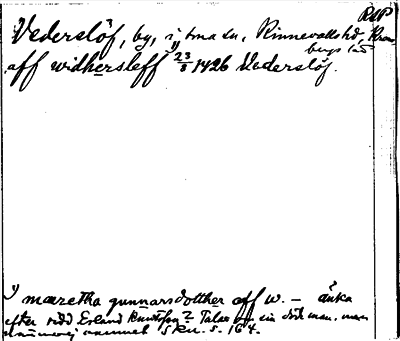 RAP
Vederslöf, by, i tma sn, Kinnevalds hd, Kron-
bergs län
aff widhersleff 1) 23/8 1426 Vederslöf.
1) maretha gunnarsdotther aff w. – änka
efter Erland Knutsson? Talar om sin döde man, men
namnet SRU. s. 164.